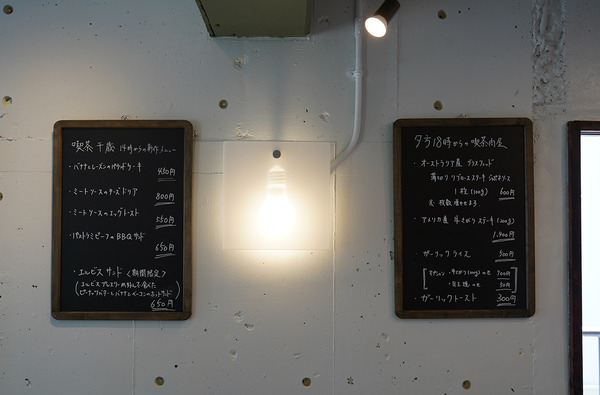 喫茶 千歳 14時からの新作メニュー
・バナナとレーズンのパウンドケーキ
450円
・ミートソースのチーズドリア
800円
・ミートソースのエッグトースト
550円
・パストラミビーフのBBQサンド
650円
・エルビスサンド〈期間限定〉
(エルビスプレスリーが好んで食べた
ピーナッツバターとバナナとベーコンのホットサンド)
650円
夕方18時からの喫茶肉屋
・オーストラリア産 グラスフェッド
薄切りリブロースステーキ
1枚(100g) 600円
※枚数増やせます。
・アメリカ産 牛さがりステーキ(200g)
1,400円
・ガーリックライス 500円
オプション ・牛さがり(100g)のせ 700円
・目玉焼のせ 50円
・ガーリックトースト 300円